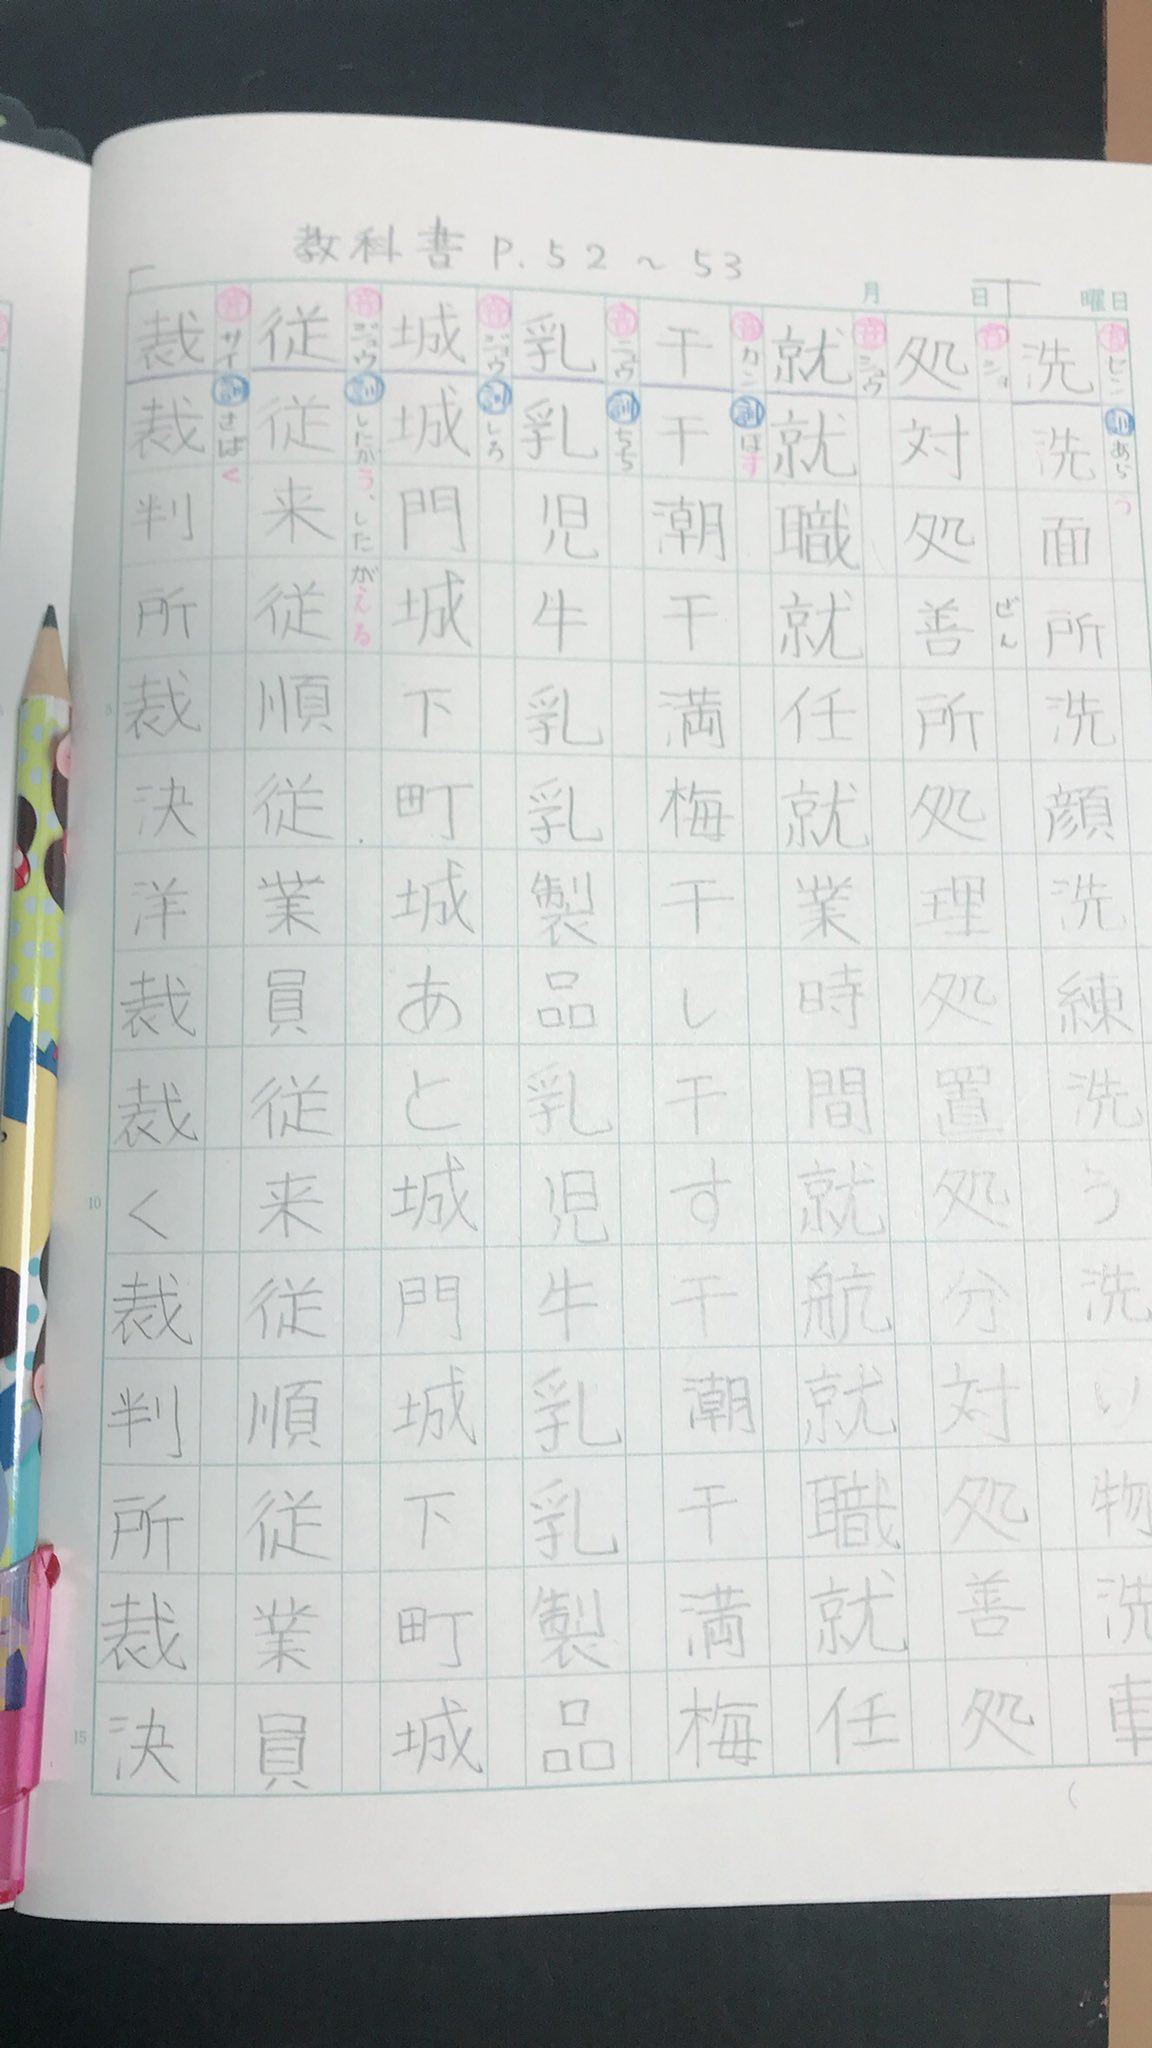 教科書 P.52~53
月 日 曜日
洗洗面所洗顔洗練洗う洗い物洗車
訓 あらう
処対処善所処理処置処分対処善処
音 ショ
ぜん
就就職就任就業時間就航就職就任
音 シュウ
干干潮干満梅干し干す干潮干満梅
音 カン 訓 ほす
乳乳児牛乳乳製品乳児牛乳乳製品
音 ニュウ 訓 ちち
城城門城下町城あと城門城下町城
音 ジョウ 訓 しろ
従従来従順従業員従来従順従業員
音 ジュウ 訓 したがう、したがえる
裁裁判所裁決洋裁裁く裁判所裁決
音 サイ 訓 さばく
5
10
15